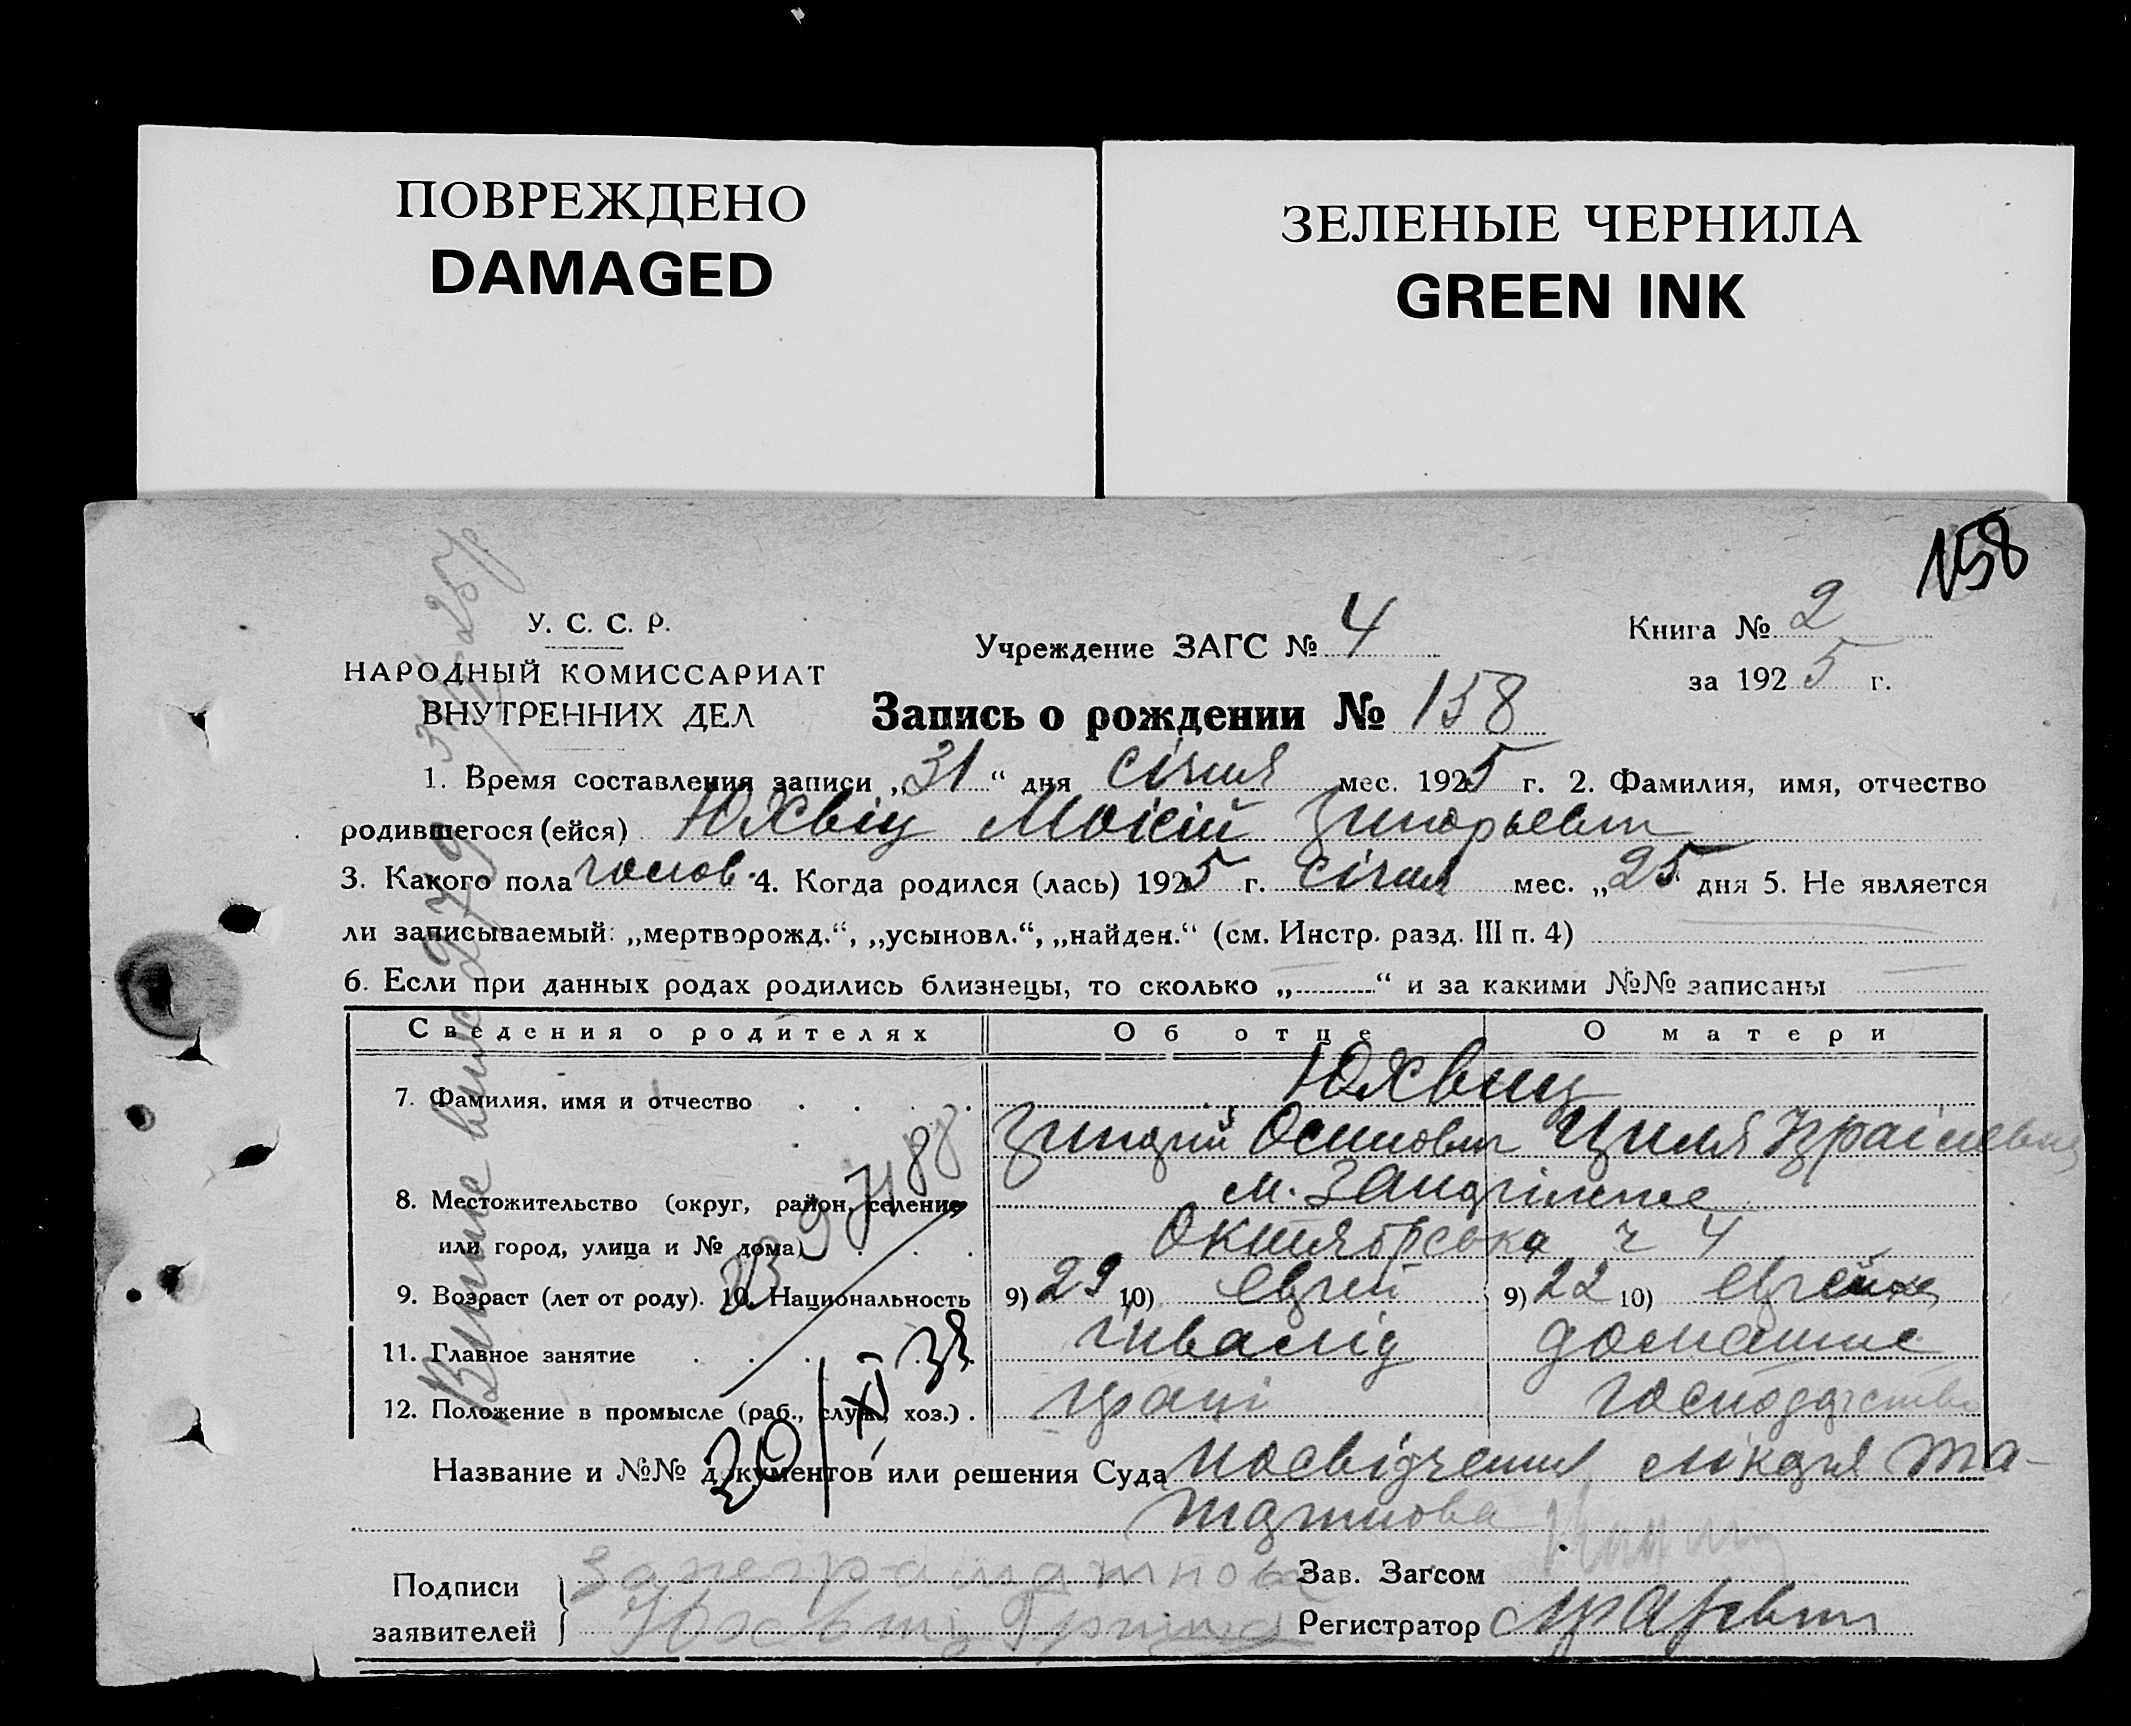 ПОВРЕЖДЕНО
DAMAGED
ЗЕЛЕНЫЕ ЧЕРНИЛА
GREEN INK
158
У. С. С. Р.
НАРОДНЫЙ КОМИССАРИАТ
ВНУТРЕННИХ ДЕЛ
Учреждение ЗАГС № 4
Книга № 2
за 1925 г.
Запись о рождении № 158
1. Время составления записи „31“ дня січня мес. 1925 г. 2. Фамилия, имя, отчество
родившегося (ейся) Юхвіц Мойсій
3. Какого пола чолов. 4. Когда родился (лась) 1925 г. січня мес. „25 дня 5. Не является
ли записываемый: „мертворожд.“, „усыновл.“, „найден.“ (см. Инстр. разд. III п. 4)
6. Если при данных родах родились близнецы, то сколько „ “ и за какими №№ записаны
Сведения о родителях Об отце О матери
7. Фамилия, имя и отчество Юхвиц
Осипович Циля Ізраілевна
8. Местожительство (округ, район, селение
или город, улица и № дома) Октяборська ч 4
9. Возраст (лет от роду). 10. Национальность 9) 29 10) Єврей 9) 22 10) Єврейка
11. Главное занятие інвалід домашнє
12. Положение в промысле (раб., служ., хоз.) праці господарство
Название и №№ документов или решения Суда посвідчення лікаря
Подписи
заявителей
за неграмотного
Юхвиц
Зав. Загсом
Регистратор
20/XI 38